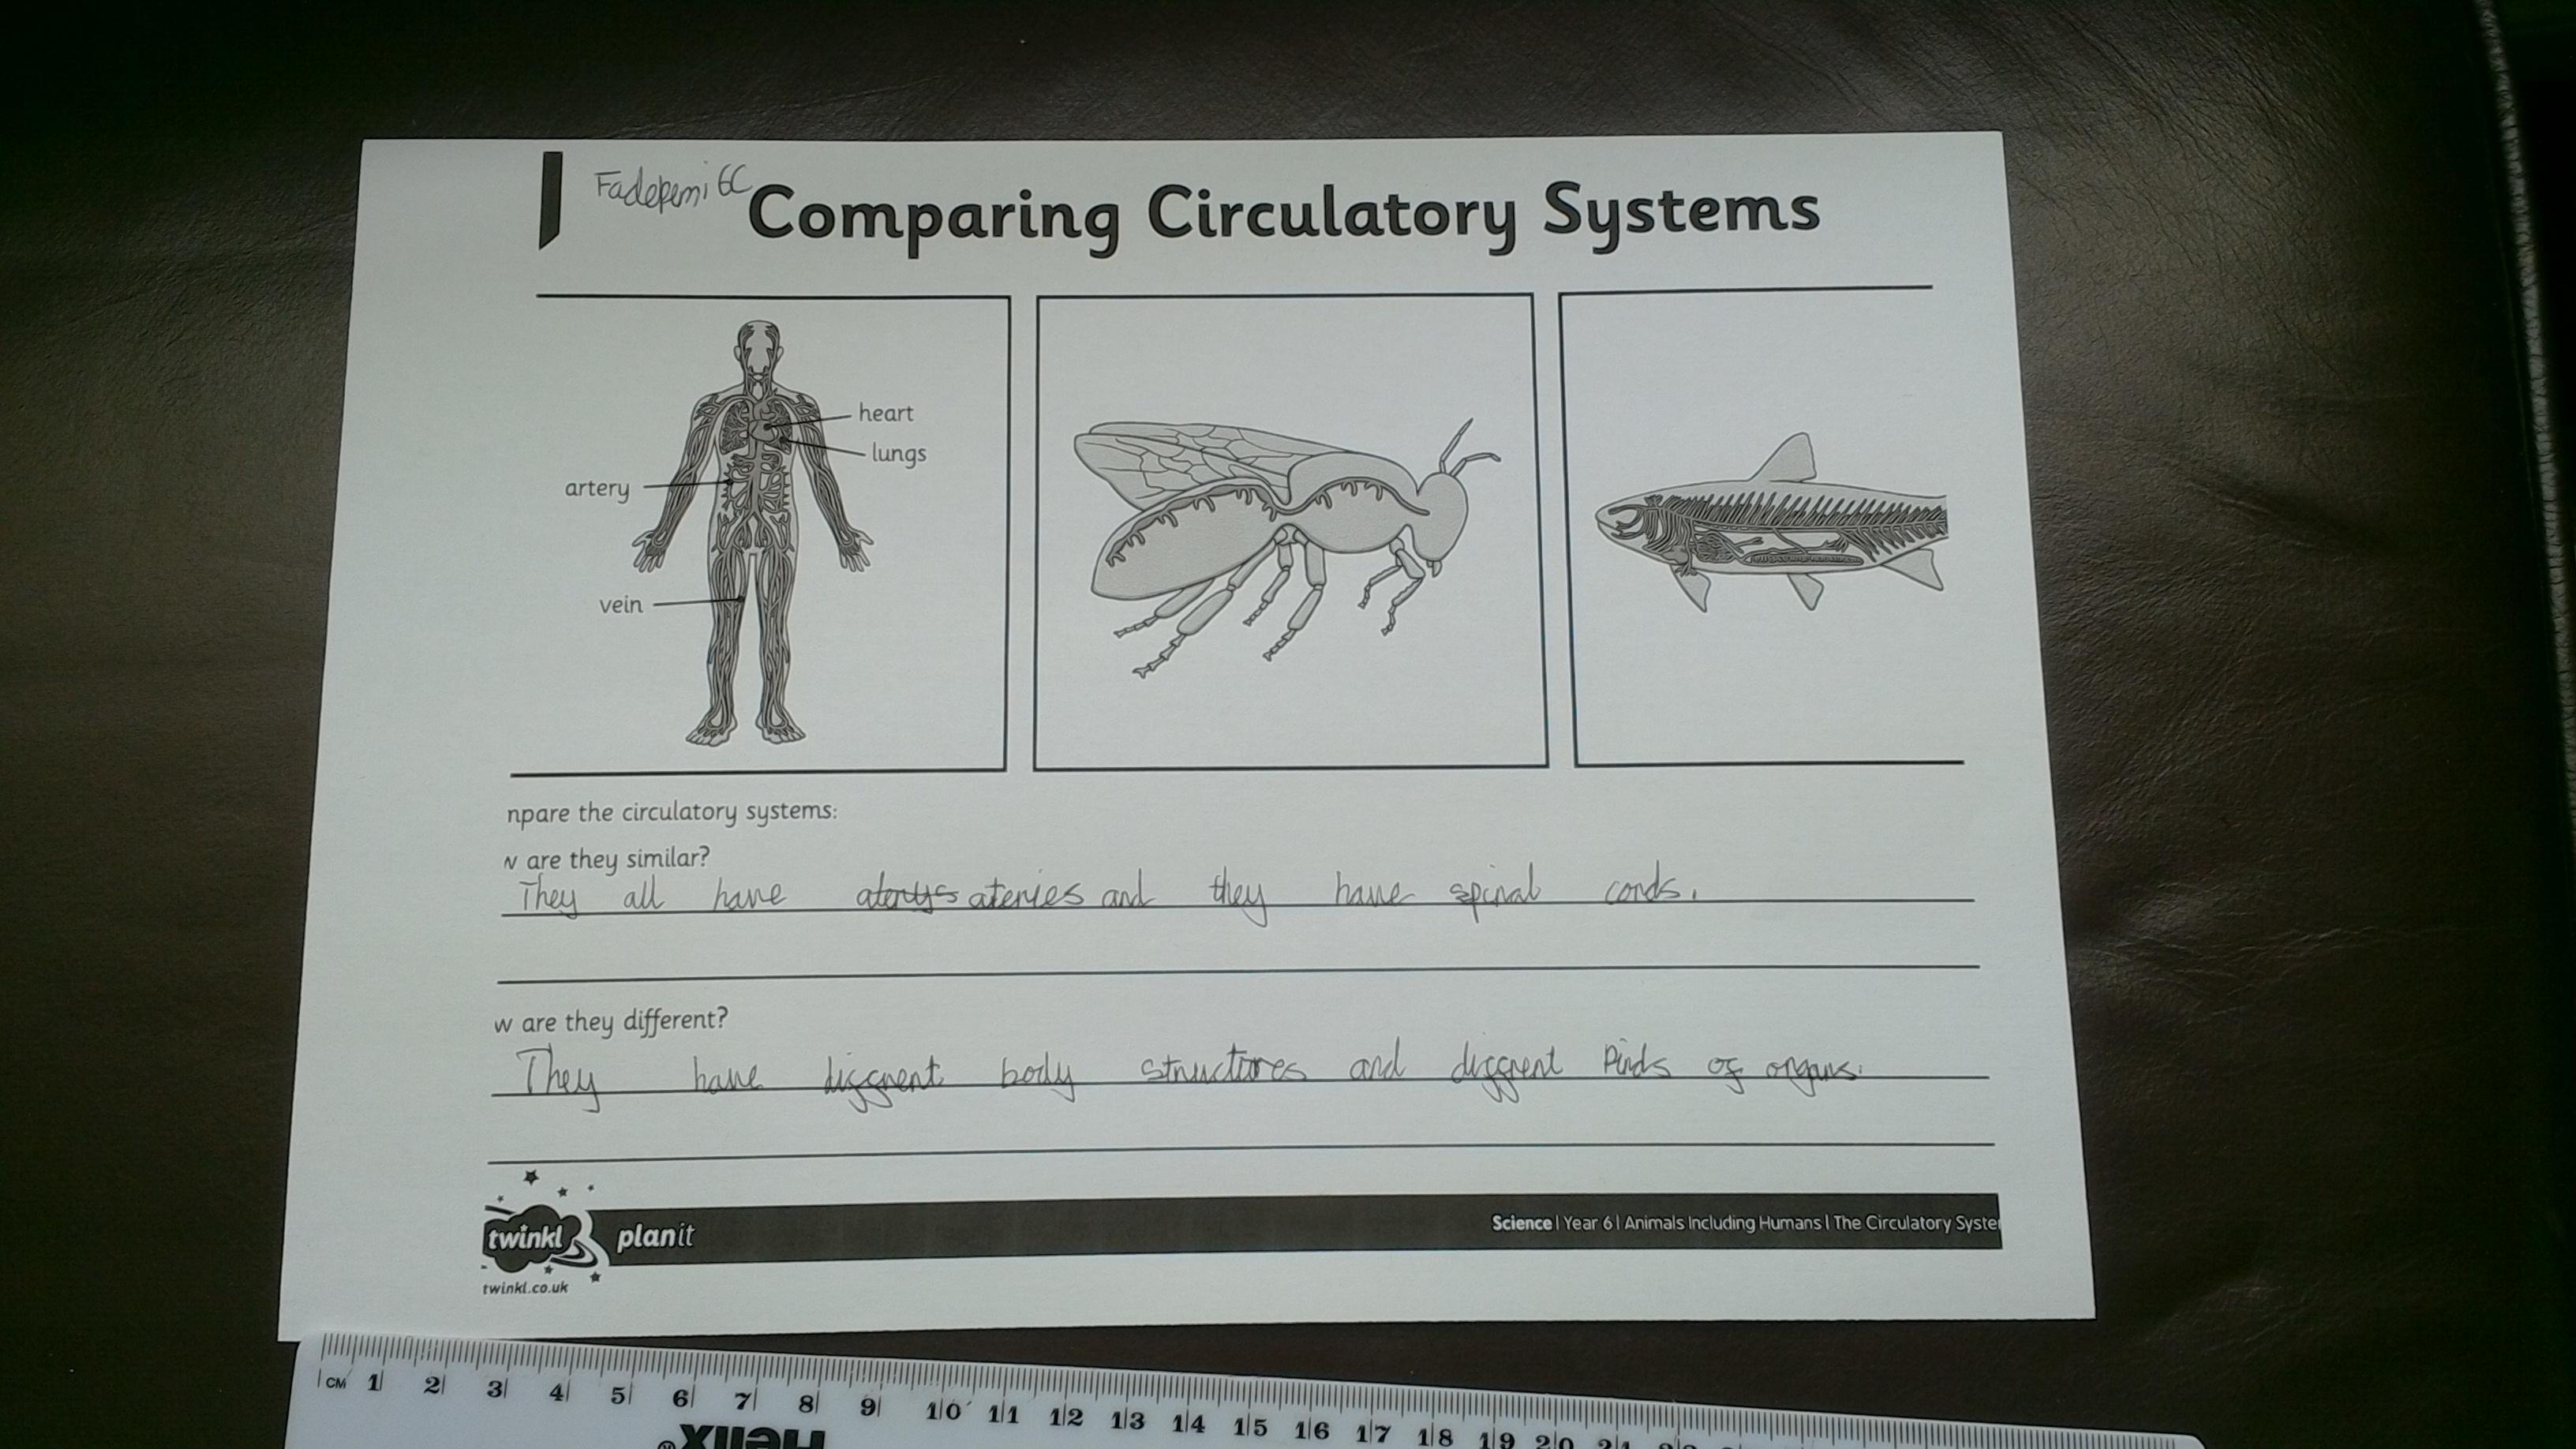 Fadepemi 6C
Comparing Circulatory Systems
heart
lungs
artery
vein
npare the circulatory systems:
w are they similar?
They all have aterys ateries and they have spinal cords.
w are they different?
They have diggrent body structures and diggrent kinds of organs.
twinkl planit
Science | Year 6 | Animals Including Humans | The Circulatory Syste
twinkl.co.uk
CM 1 2 3 4 5 6 7 8 9 10 11 12 13 14 15 16 17 18 19 20 21
Helix